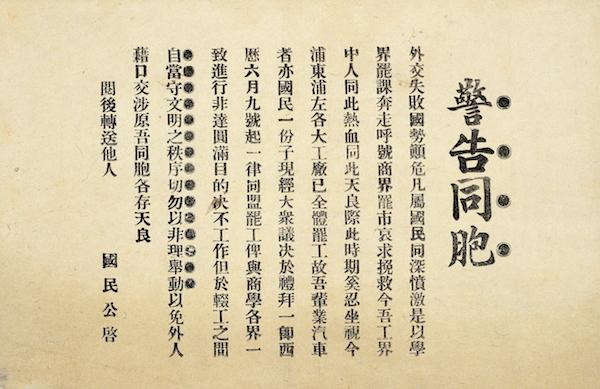 警告同胞
外交失敗國勢顚危凡屬國民同深憤激是以學
界罷課奔走呼號商界罷市哀求挽救今吾工界
中人同此熱血同此天良際此時期奚忍坐視今
浦東浦左各大工廠已全體罷工故吾輩業汽車
者亦國民一份子現經大衆議决於禮拜一卽西
歷六月九號起一律同盟罷工俾與商學各界一
致進行非達圓滿目的决不工作但於輟工之間
自當守文明之秩序切勿以非理舉動以免外人
藉口交涉原吾同胞各存天良
閱後轉送他人　國民公啓